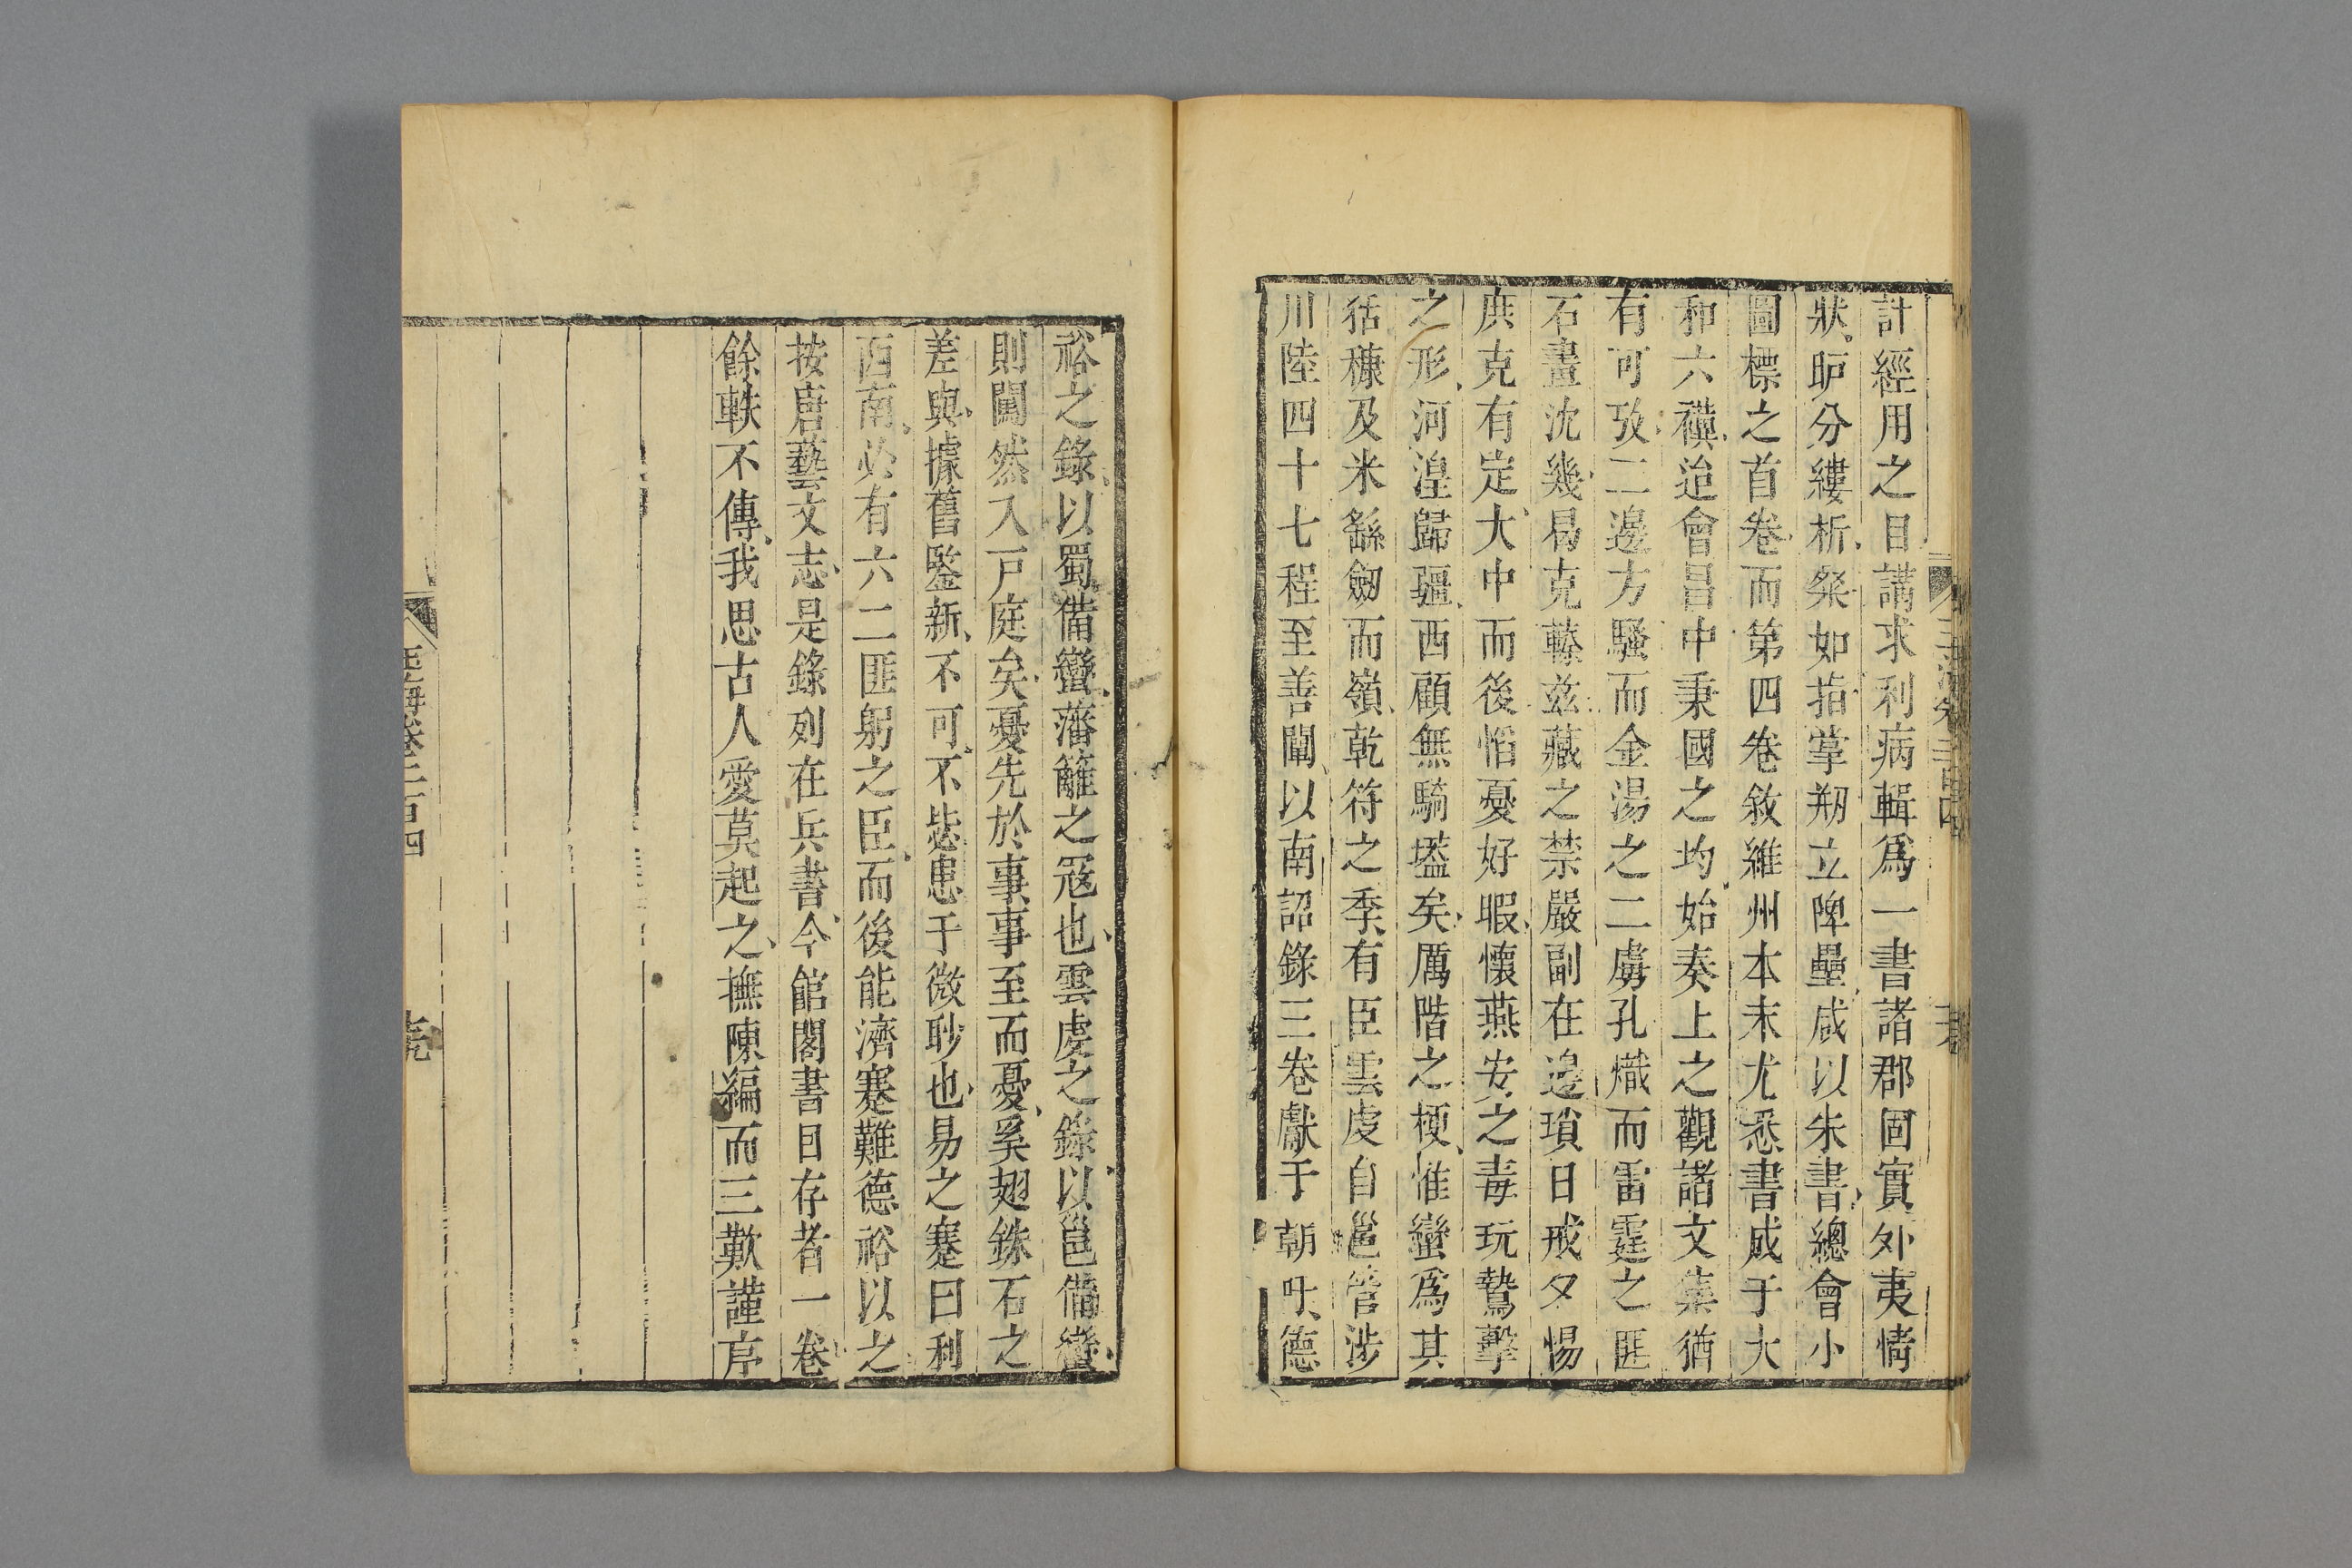 計經用之目講求利病輯爲一書諸郡固實外夷情
狀昈分縷析粲如指掌剏立陴壘咸以朱書總會小
圖標之首卷而第四卷敘維州本末尤悉書成于大
和六禩迨會昌中秉國之均始奏上之觀諸文集猶
有可攷二邊方騷而金湯之二虜孔熾而雷霆之匪
石畫沈幾曷克臻茲藏之禁嚴副在邊瑣日戒夕惕
庶克有定大中而後慆憂好暇懷燕安之毒玩鷙擊
之形河湟歸疆西顧無騎㙪矣厲階之梗惟蠻爲其
狧穅及米繇劒而嶺乾符之季有臣雲虔自邕管涉
川陸四十七程至善闡以南詔錄三卷獻于朝吁德
裕之錄以蜀備蠻藩籬之冦也雲虔之錄以邕備蠻
則闖然入戸庭矣憂先於事事至而憂奚翅銖石之
差與據舊鑒新不可不毖患于微眇也易之蹇曰利
西南必有六二匪躬之臣而後能濟蹇難德裕以之
按唐藝文志是錄列在兵書今館閣書目存者一卷
餘軼不傳我思古人愛莫起之撫陳編而三歎謹序
玉海卷二百四